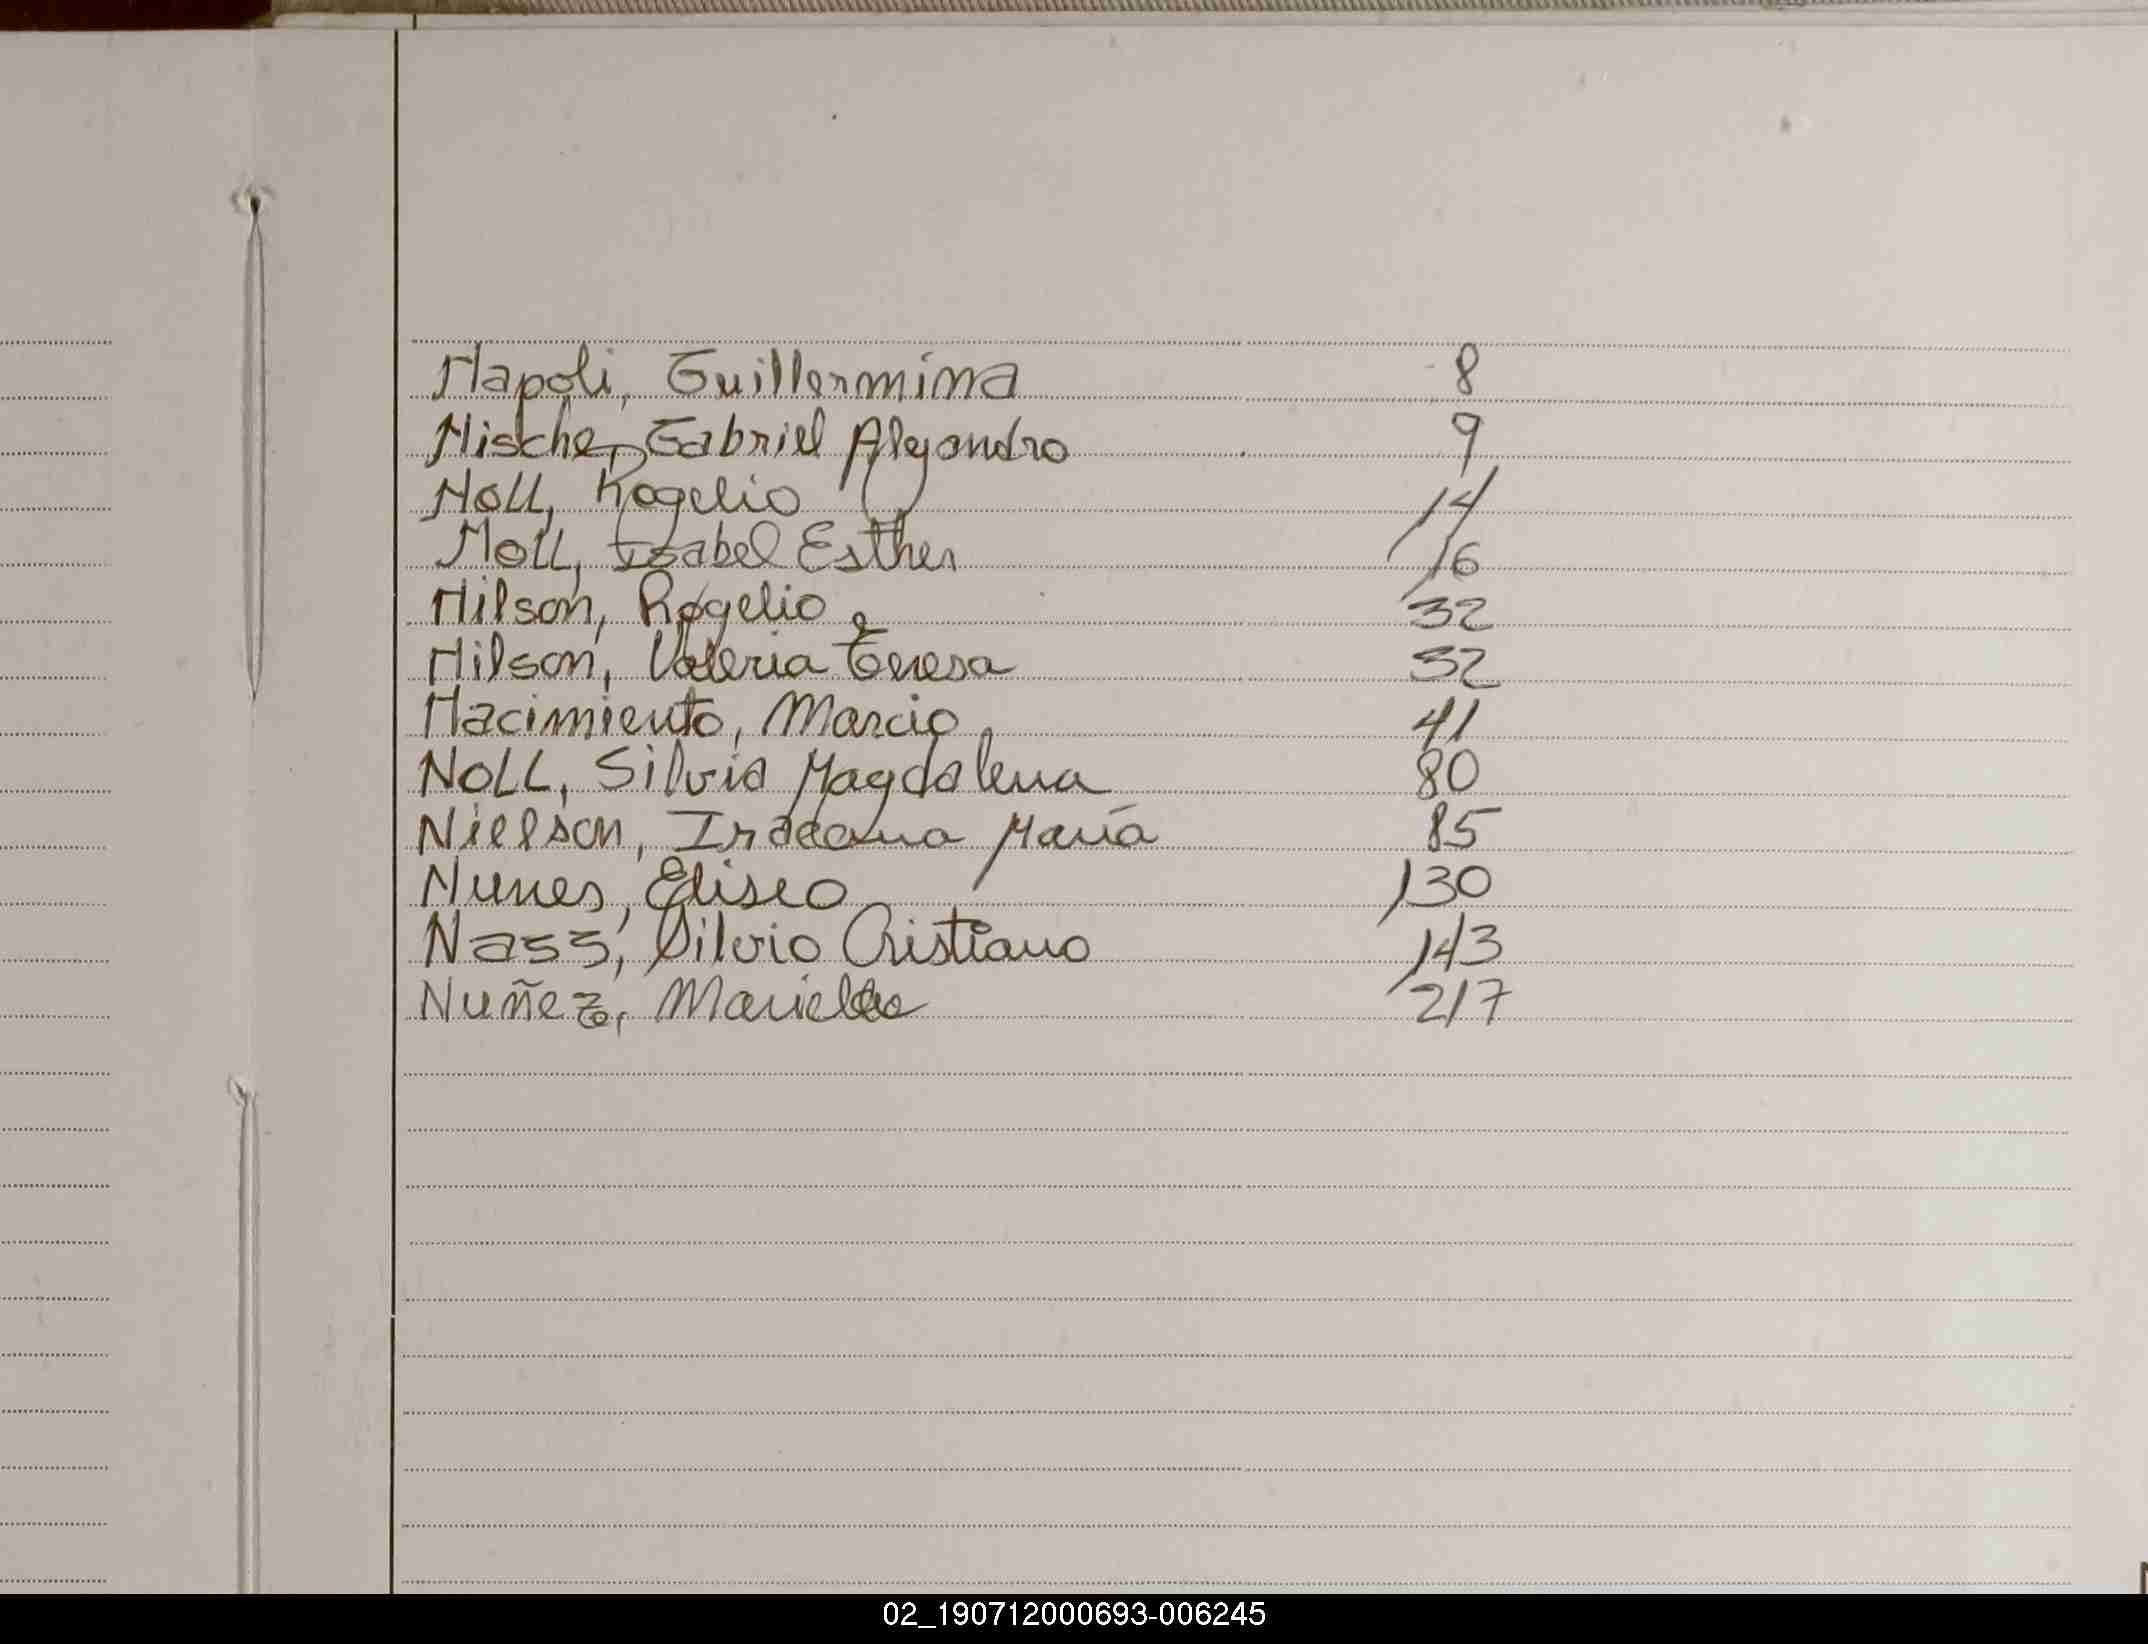 Napoli, Guillermina 8
Nische, Gabriel Alejandro 9
Noll, Rogelio 14
Noll, Isabel Esther 16
Nilson, Rogelio 32
Nilson, Valeria Teresa 32
Nacimiento, Marcio 41
NOLL, Silvia Magdalena 80
Nielson, María 85
Nunes, Eliseo 130
Nass, Silvio Cristiano 143
Nuñez, 217
02_190712000693-006245